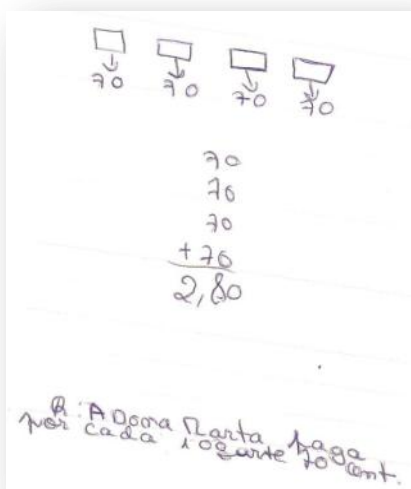 70 70 70 70
70
70
70
+ 70
2,80
R: A Dona Marta paga
por cada iogurte 70 cent.